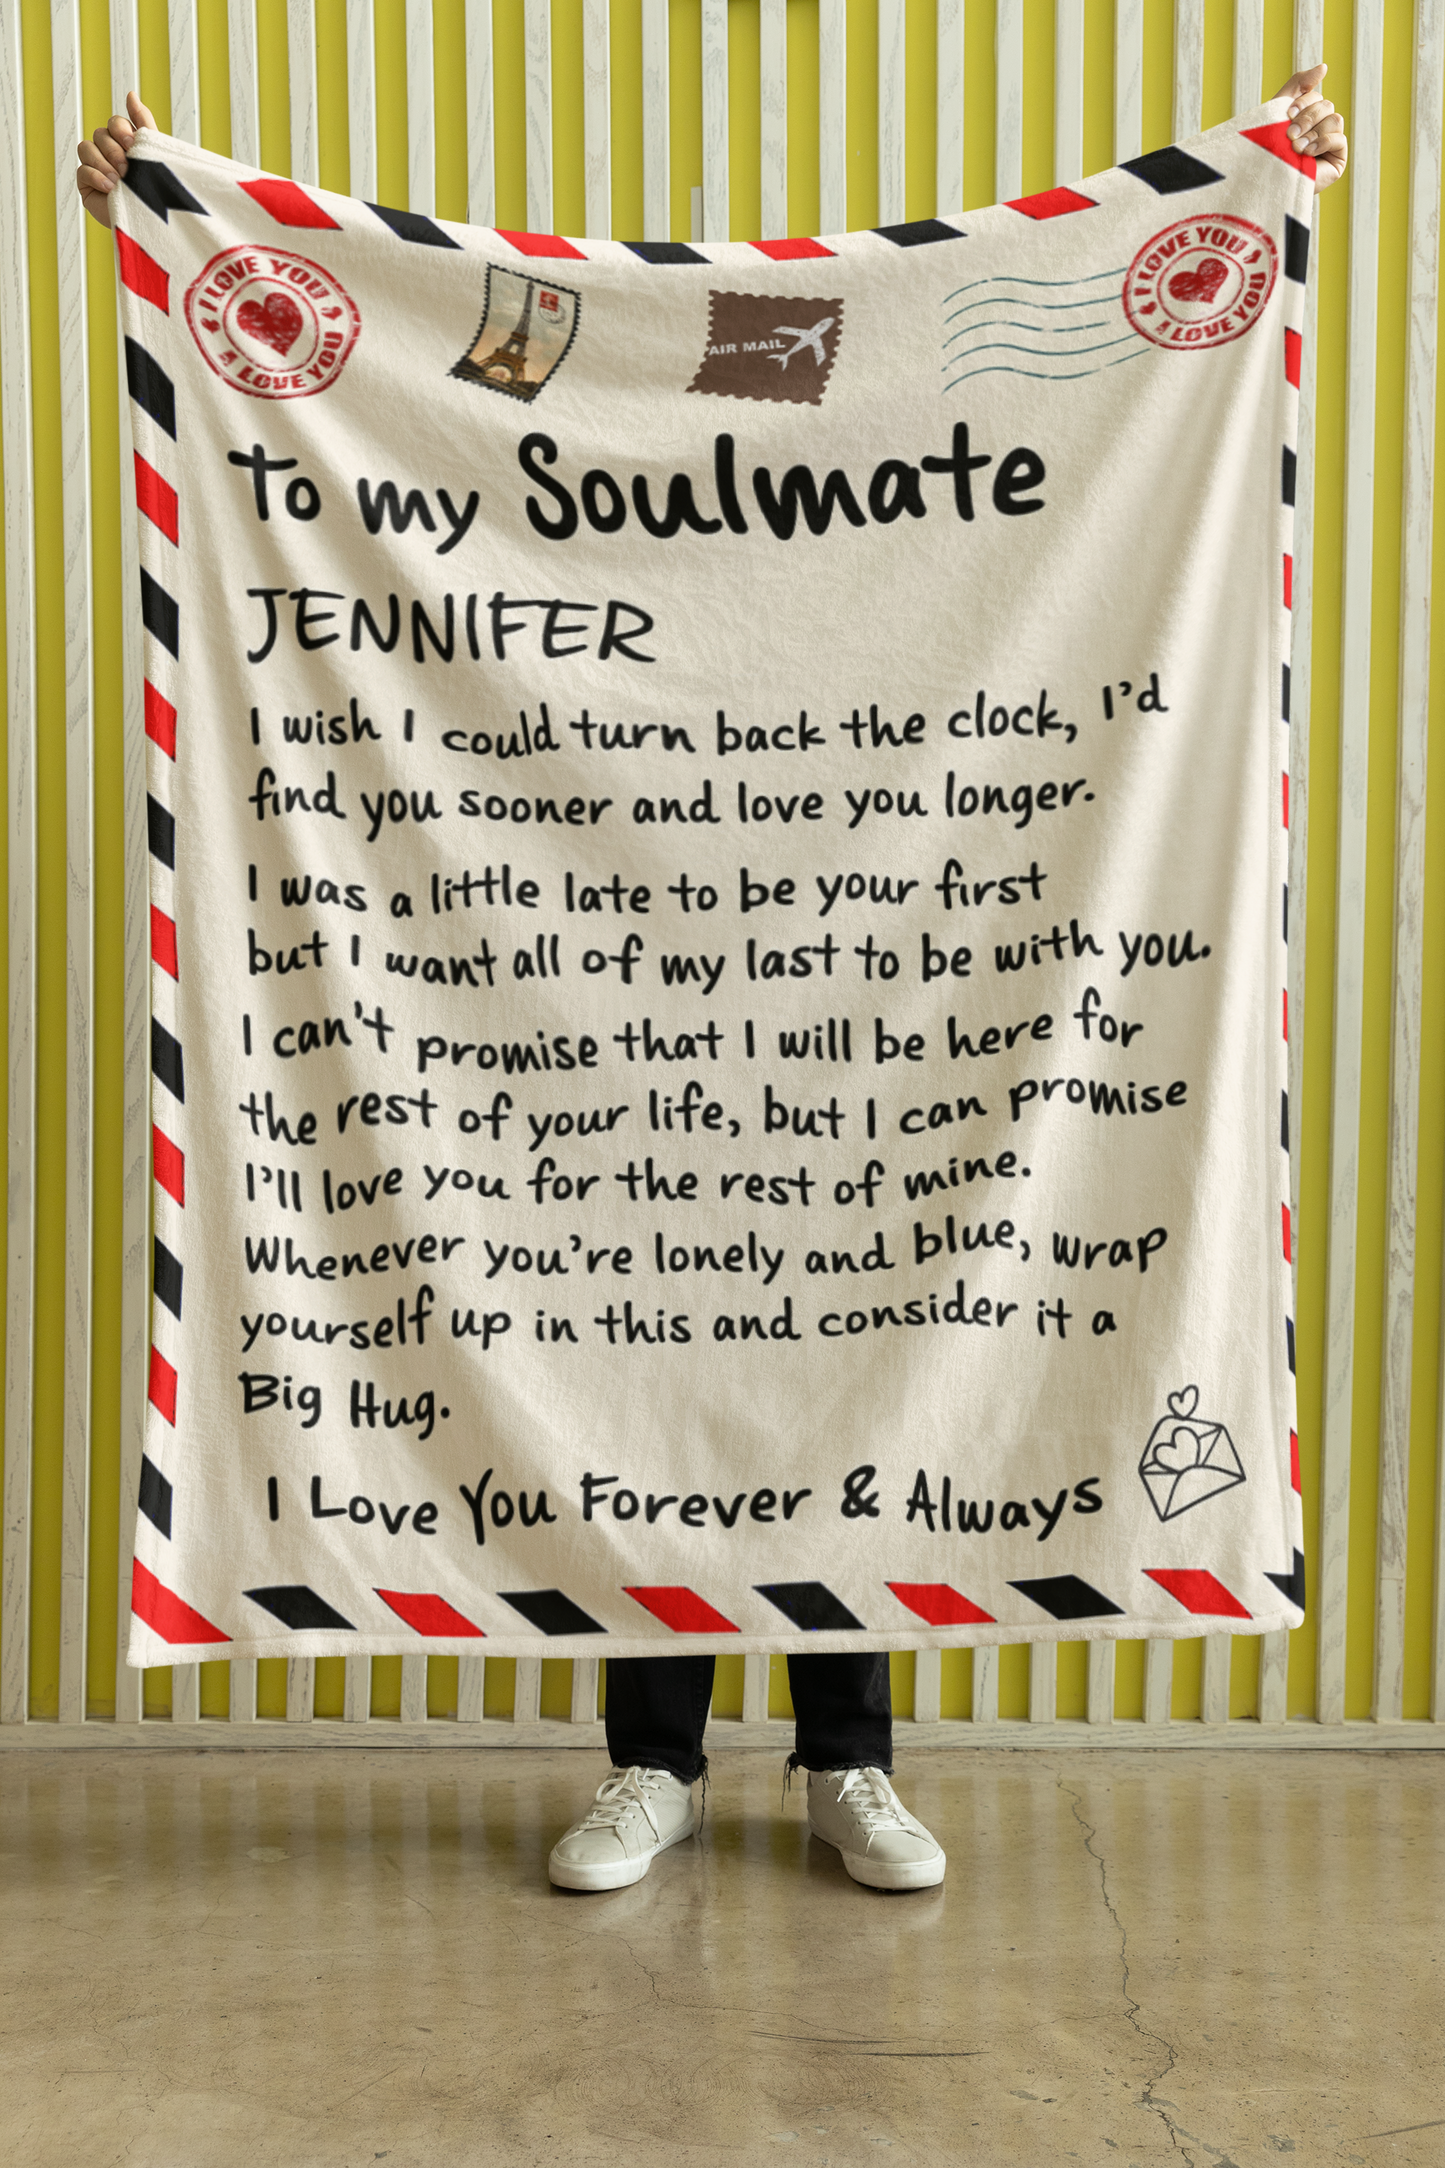 I LOVE YOU
I LOVE YOU
AIR MAIL
I LOVE YOU
I LOVE YOU
To my Soulmate
JENNIFER
I wish I could turn back the clock, I'd
find you sooner and love you longer.
I was a little late to be your first
but I want all of my last to be with you.
I can't promise that I will be here for
the rest of your life, but I can promise
I'll love you for the rest of mine.
Whenever you're lonely and blue, wrap
yourself up in this and consider it a
Big Hug.
I Love You Forever & Always